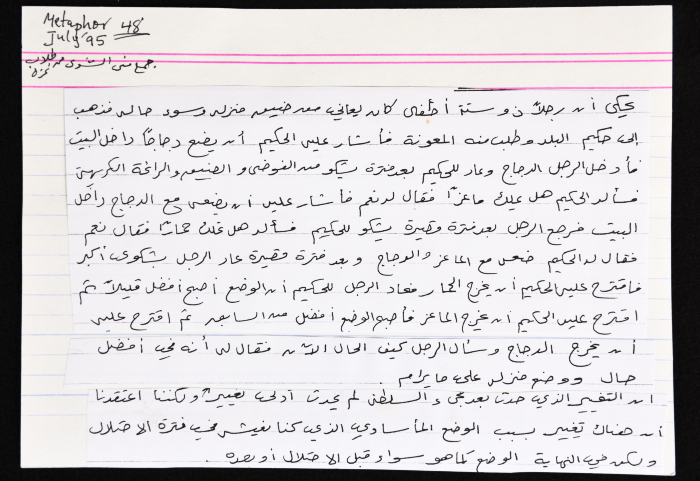 Metaphor 48
July '95
جمع منى الشوا من طلاب
غزة
يحكى أن رجلاً ذو ستة أطفال كان يعاني من ضيق منزله وسوء حاله فذهب
إلى حكيم البلد وطلب منه المعونة فأشار عليه الحكيم أن يضع دجاجاً داخل البيت
فأدخل الرجل الدجاج وعاد للحكيم بعد فترة يشكو من الفوضى و الضيق والرائحة الكريهة
فسأله الحكيم هل عندك ماعزاً فقال له نعم فأشار عليه أن يضعه مع الدجاج داخل
البيت فرجع الرجل بعد فترة قصيرة يشكو للحكيم فسأله هل عندك حمارًا فقال نعم
فقال له الحكيم ضعه مع الماعز والدجاج وبعد فترة قصيرة عاد الرجل بشكوى أكبر
فاقترح عليه الحكيم أن يخرج الحمار فعاد الرجل للحكيم أن الوضع أصبح أفضل قليلاً ثم
اقترح عليه الحكيم أن يخرج الماعز فأصبح الوضع أفضل من السابق ثم اقترح عليه
أن يخرج الدجاج وسأل الرجل كيف الحال الآن فقال له أنه في أفضل
حال ووضع منزله على ما يرام.
ان التغيير الذي حدث بعد مجيء السلطة لم يحدث أدنى تغيير ولكننا اعتقدنا
أن هناك تغيير بسبب الوضع المأساوي الذي كنا نعيشه في فترة الاحتلال
ولكن في النهاية الوضع كما هو سواء قبل الاحتلال أو بعده.